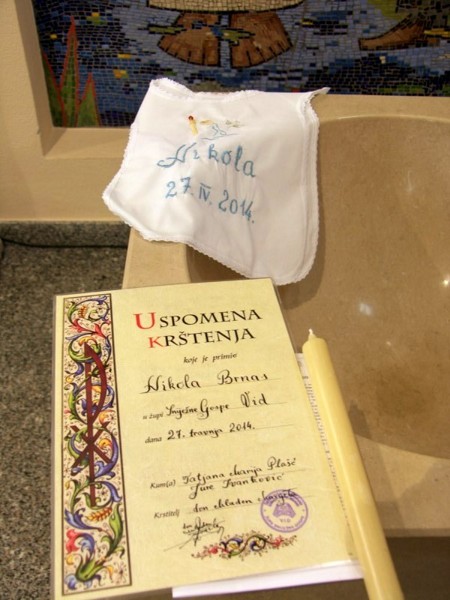 Nikola
27. IV. 2014.
USPOMENA
KRŠTENJA
koje je primio
Nikola Brnas
u župi Snježne Gospe Vid
dana 27. travnja 2014.
Kum(a) Tatjana Marija Plašć
Jure Ivanković
Krstitelj don Mladen
VID